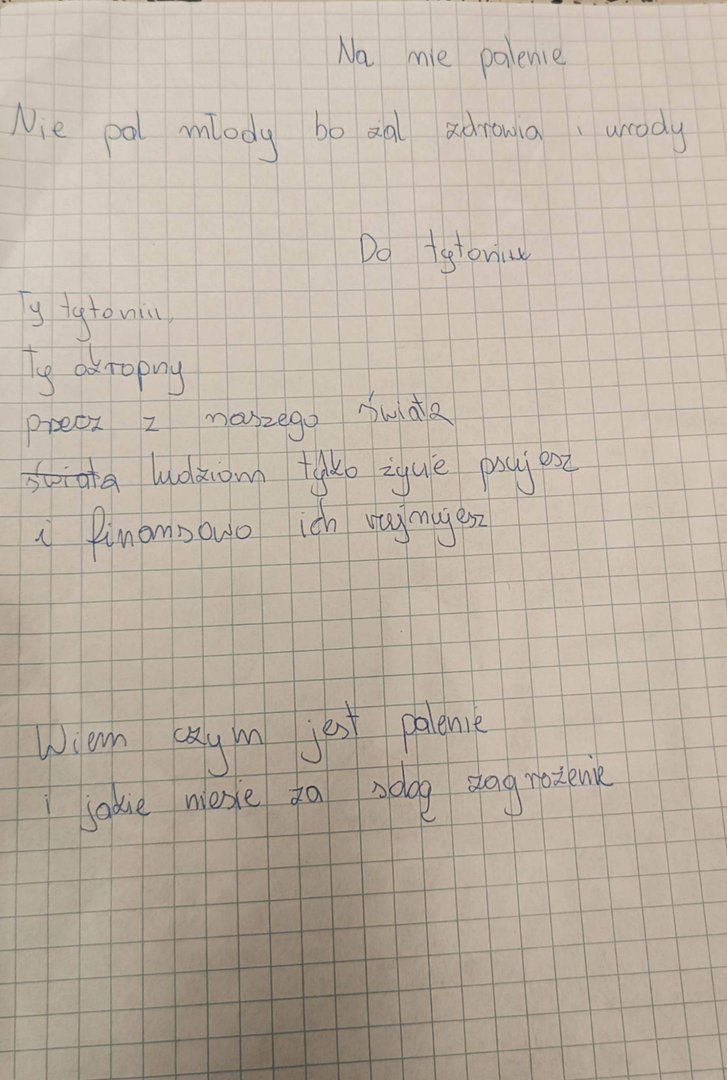 Na nie palenie
Nie pal młody bo żal zdrowia i urody
Do tytoniu
Ty tytoniu,
Ty okropny
precz z naszego świata
świata ludziom tylko życie psujesz
i finansowo ich rujnujesz
Wiem czym jest palenie
i jakie niesie za sobą zagrożenie